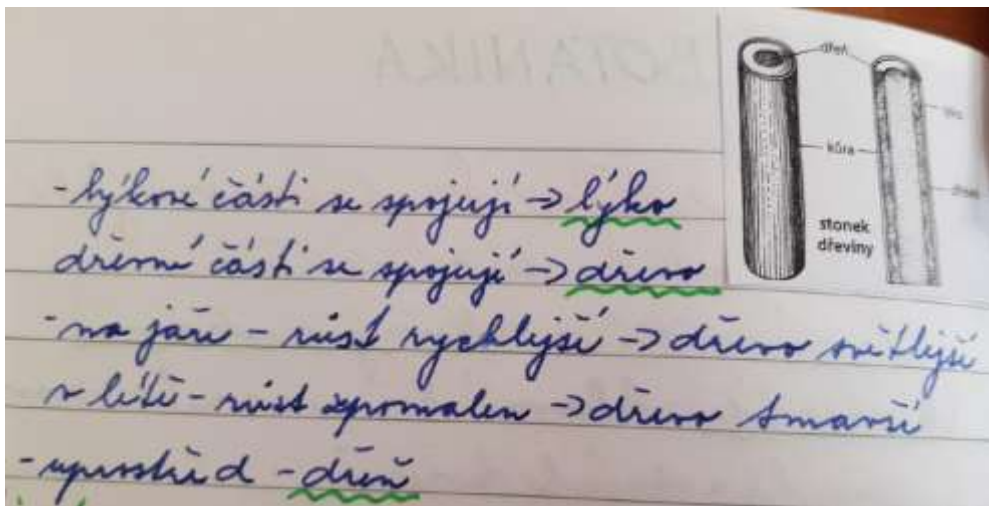 BOTANIKA
dřeň
lýko
kůra
dřevo
stonek
dřeviny
- lýkové části se spojují -> lýko
dřevní části se spojují -> dřevo
- na jaře - růst rychlejší -> dřevo světlejší
v létě - růst zpomalen -> dřevo tmavší
- uprostřed - dřeň